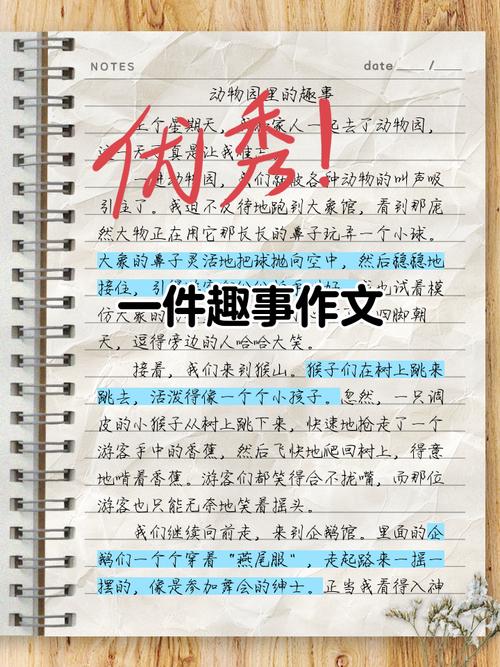 NOTES
date ____ / ____
动物园里的趣事
优秀！
上个星期天，家人一起去了动物园，
一天真是让我难
一进动物园，我们就被各种动物的叫声吸
引住了。我迫不及待地跑到大象馆，看到那庞
然大物正在用它那长长的鼻子玩弄一个小球。
大象的鼻子灵活地把球抛向空中，然后稳稳地
接住，引得也试着模
一件趣事作文
仿大象的四脚朝
天，逗得旁边的人哈哈大笑。
接着，我们来到猴山。猴子们在树上跳来
跳去，活泼得像一个个小孩子。忽然，一只调
皮的小猴子从树上跳下来，快速地抢走了一个
游客手中的香蕉，然后飞快地爬回树上，得意
地啃着香蕉。游客们都笑得合不拢嘴，而那位
游客也只能无奈地笑着摇头。
我们继续向前走，来到企鹅馆。里面的企
鹅们一个个穿着“燕尾服”，走起路来一摇一
摆的，像是参加舞会的绅士。正当我看得入神